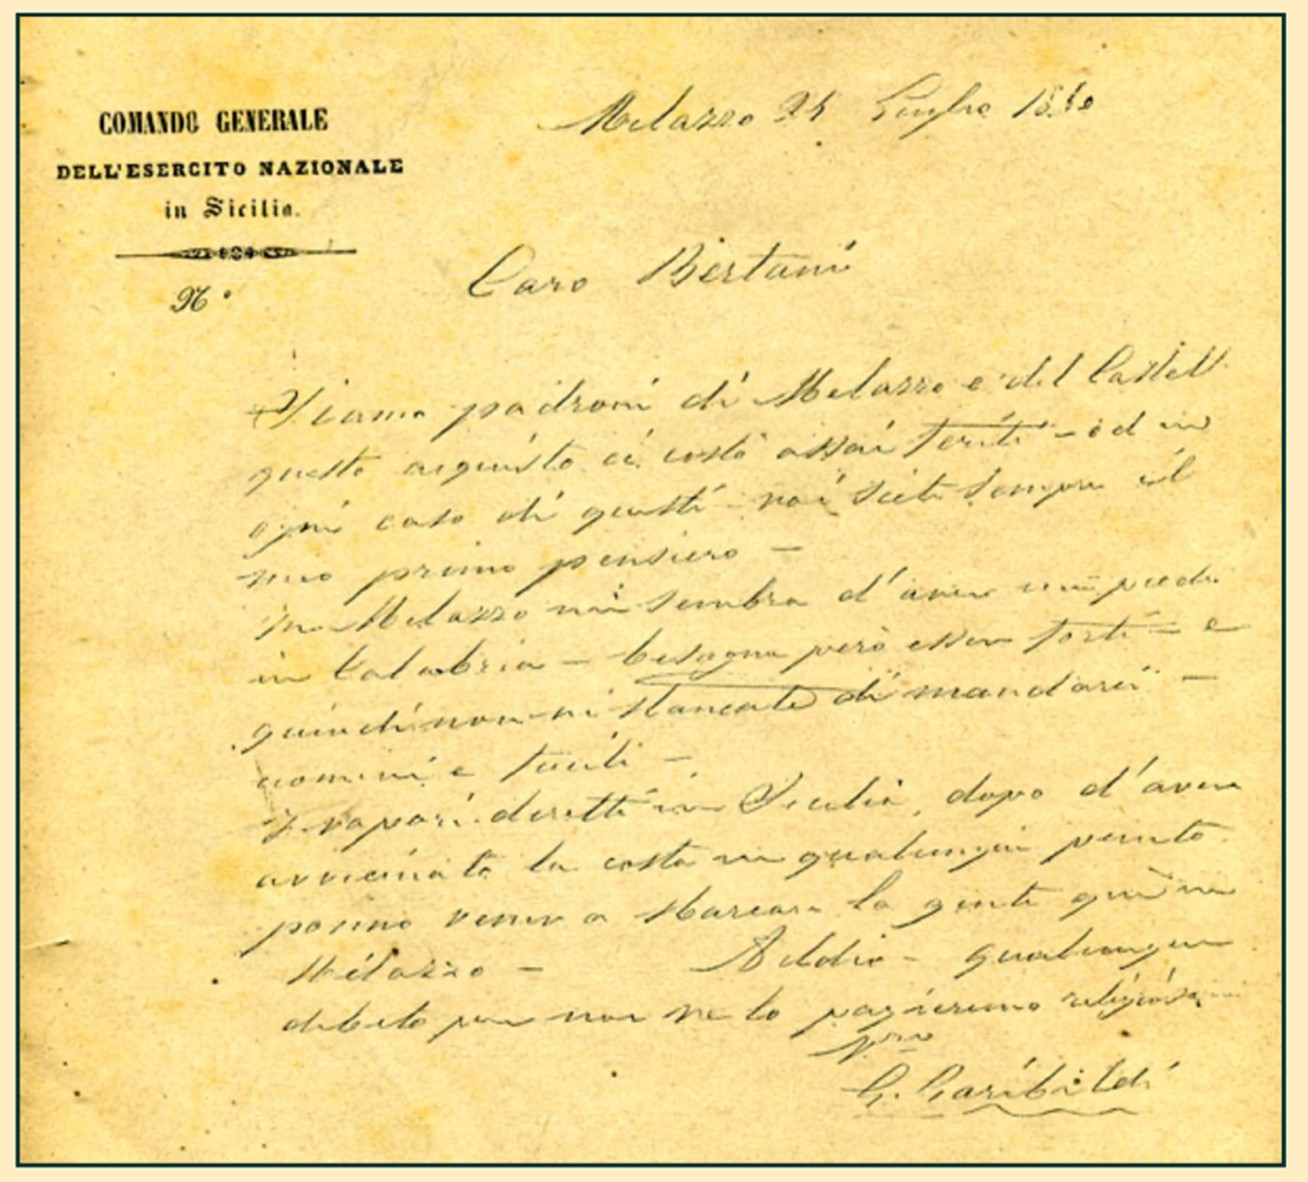 COMANDO GENERALE
DELL'ESERCITO NAZIONALE
in Sicilia.
N.°
Melazzo 24 Luglio 1860
Caro Bertani
Siamo padroni di Melazzo e del Castello
questo acquisto ci costò assai feriti - ed in
ogni caso di questi voi siete sempre il
mio primo pensiero -
In Melazzo mi sembra d'aver un piede
in Calabria - bisogna però esser forti - e
quindi non vi stancate di mandarci -
uomini e fucili -
I vapori diretti in Sicilia, dopo d'aver
avvicinato la costa in qualunque punto
ponno venir a sbarcare la gente qui in
Melazzo - Addio - qualunque
debito per noi ve lo pagheremo
Vro
G. Garibaldi